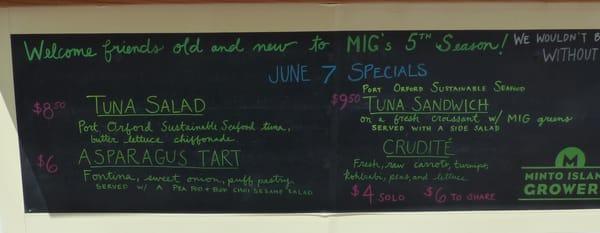 Welcome friends old and new to MIG's 5TH Season!
WE WOULDN'T B
WITHOUT
JUNE 7 SPECIALS
$8.50 TUNA SALAD
Port Orford Sustainable Seafood tuna,
butter lettuce chiffonade
$6 ASPARAGUS TART
Fontina, sweet onion, puff pastry
SERVED W/ A PEA POD + BOK CHOI SESAME SALAD
PORT ORFORD SUSTAINABLE SEAFOOD
$9.50 TUNA SANDWICH
on a fresh croissant w/ MIG greens
SERVED WITH A SIDE SALAD
CRUDITÉ
Fresh, raw carrots, turnips,
kohlrabi, peas, and lettuce
$4 SOLO $6 TO SHARE
M
MINTO ISLAN
GROWER